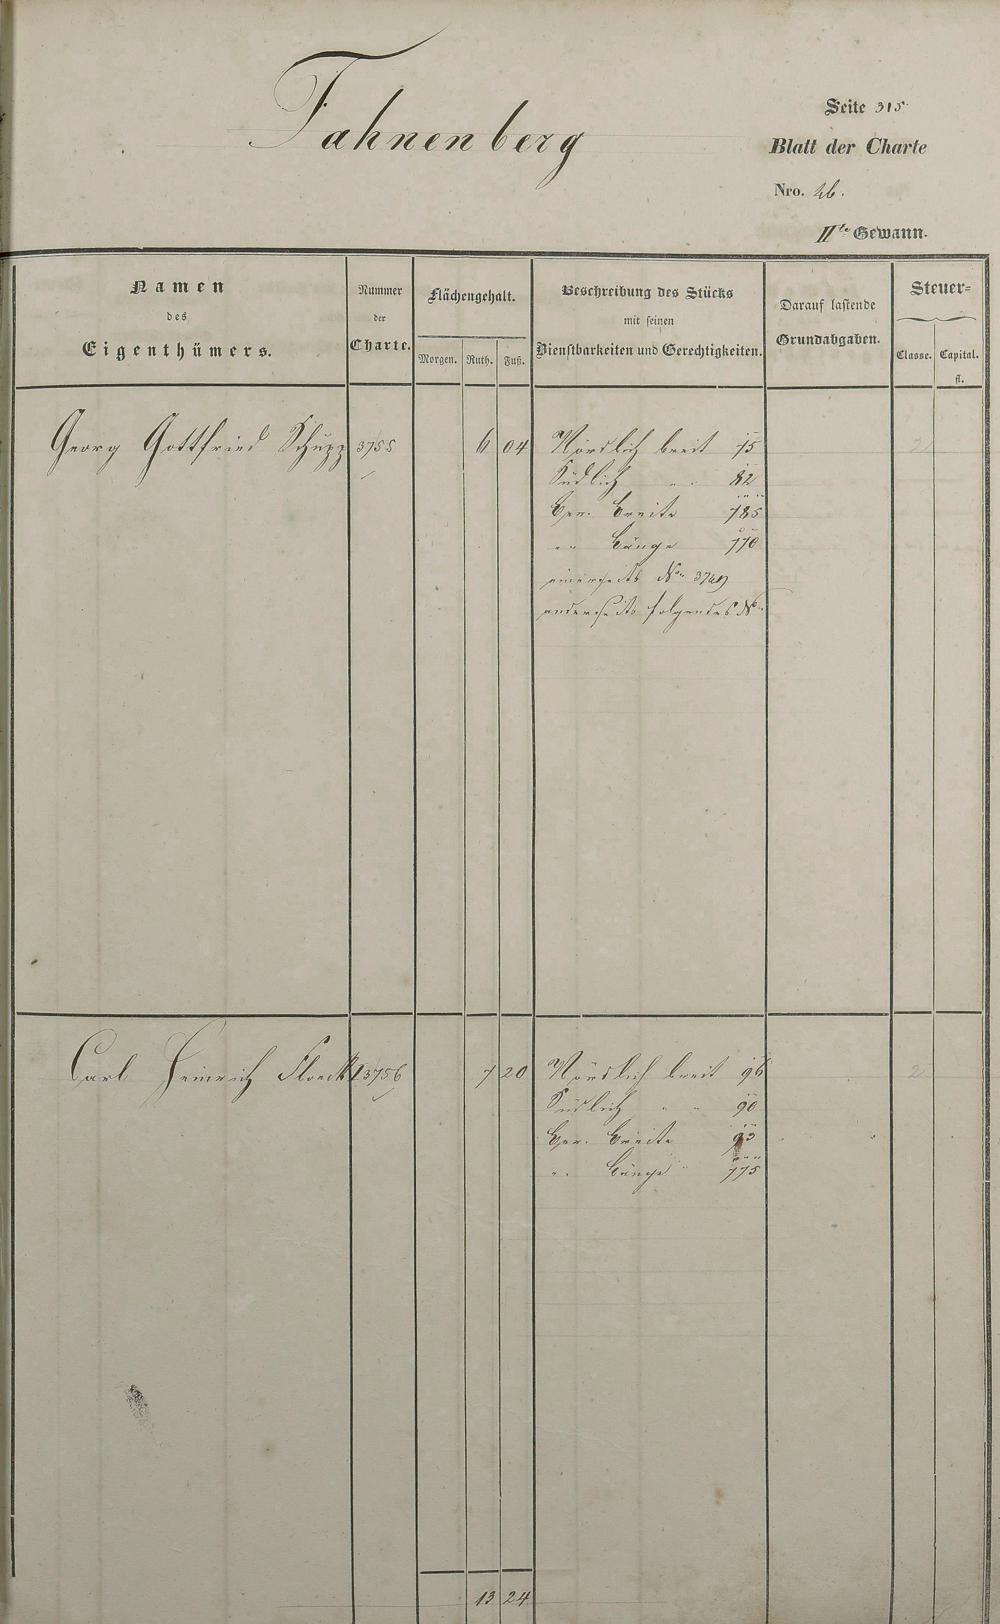 Fahnenberg
Seite 315
Blatt der Charte
Nro. 26.
IIte Gewann.
Namen
des
Eigenthümers.
Nummer
der
Charte.
Flächengehalt.
Morgen. Ruth. Fuß.
Beschreibung des Stücks
mit seinen
Dienstbarkeiten und Gerechtigkeiten.
Darauf lastende
Grundabgaben.
Steuer=
Classe. Capital.
fl.
Georg Gottfried Schupp 3755 6 04 Nördlich breit 75 2
Südlich " " 82
Ger. Breite 785
" " Länge 770
einerseits No 3749
anderseits folgendes No
Carl Heinrich Floeck 3756 7 20 Nördlich breit 96 2
Südlich " " 90
Ger. Breite 93
" " Länge 775
13 24